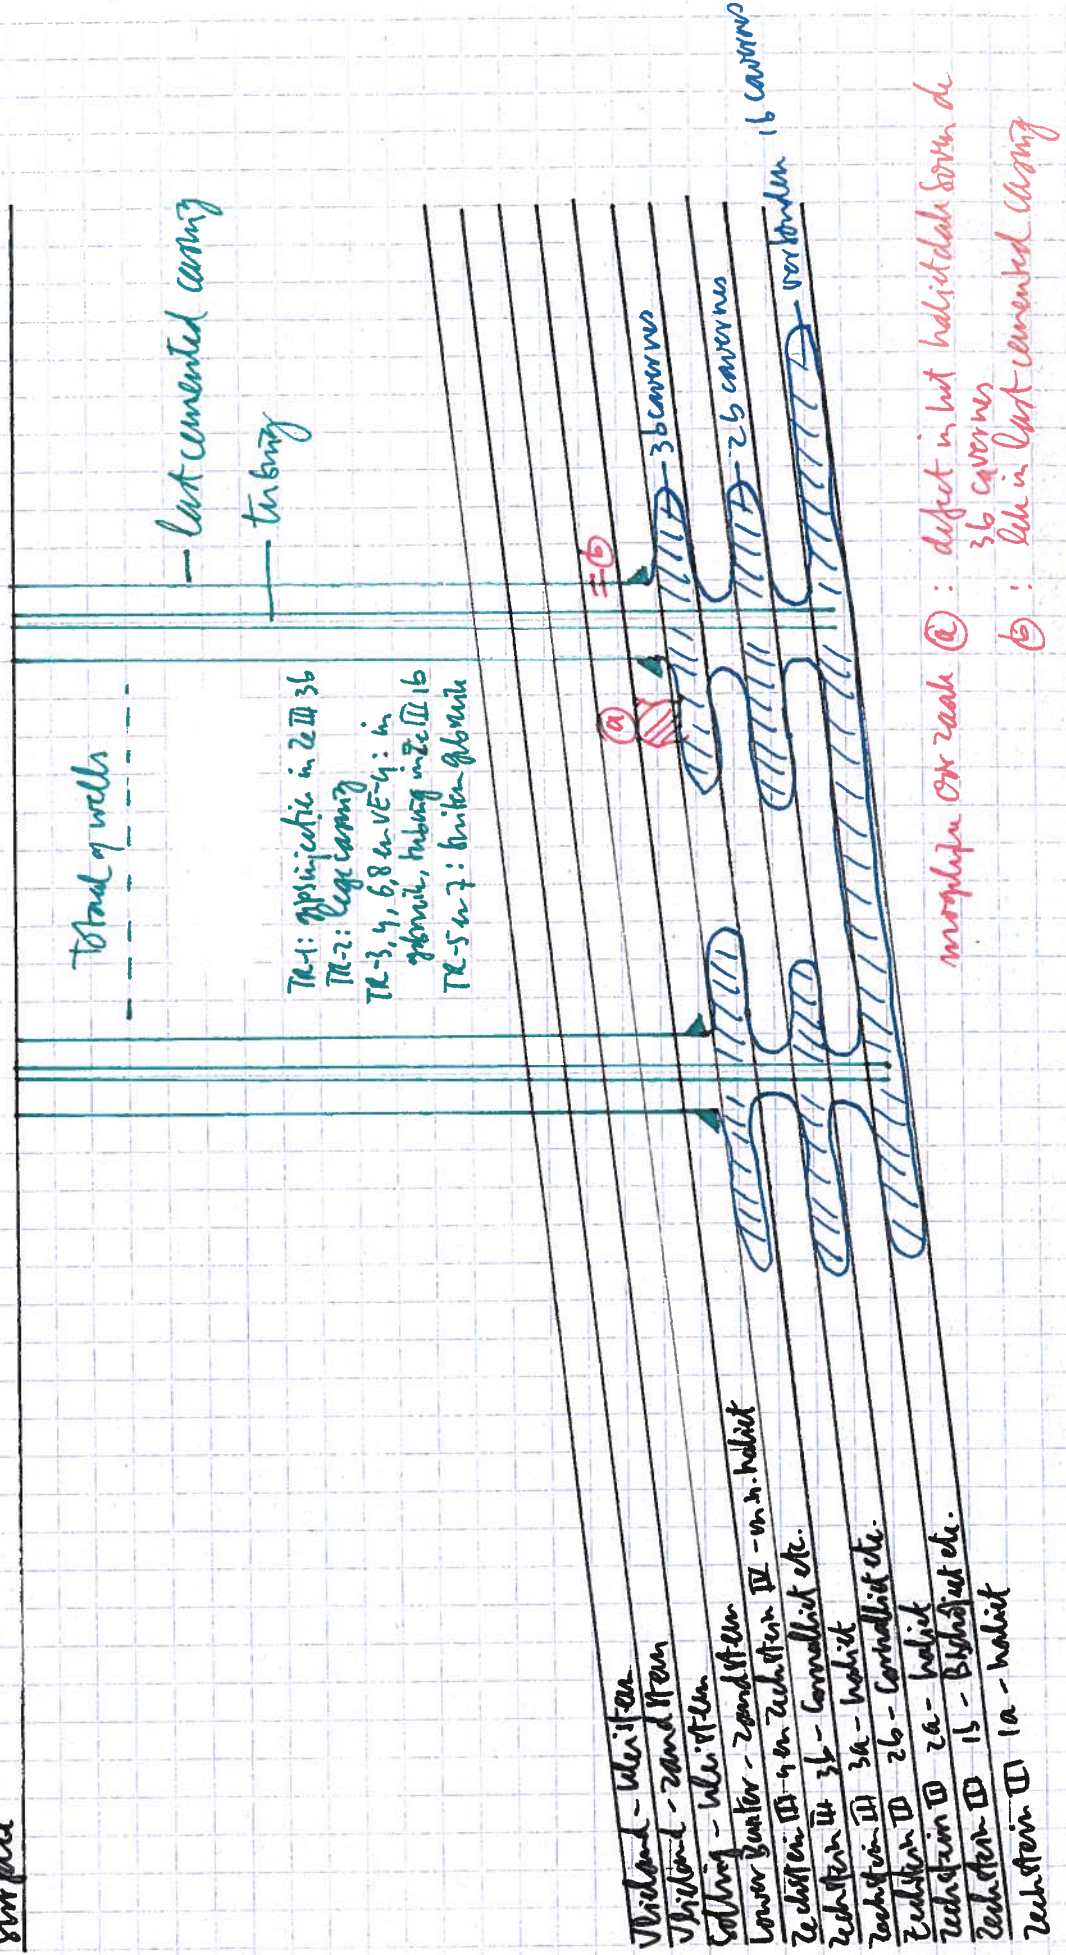 surface
last cemented casing
tubing
Total 9 wells
TR-1: gipsinjectie in ZeIII 3b
TR-2: lege casing
TR-3, 4, 6, 8 en VE-4: in
gebruik, tubing in ZeIII 1b
TR-5 en 7: buiten gebruik
b
a
3b cavernes
2b cavernes
verbonden 1b cavernes
Vlieland - kleisteen
Vlieland - zandsteen
Solling - kleisteen
Lower Bunter - zandsteen
Zechstein III-4 en Zechstein IV - m.n. haliet
Zechstein III 3b - Carnalliet etc.
Zechstein III 3a - haliet
Zechstein III 2b - Carnalliet etc.
Zechstein III 2a - haliet
Zechstein III 1b - Bischofiet etc.
Zechstein III 1a - haliet
mogelijke oorzaak a : defect in het halietdak boven de
3b cavernes
b : lek in last cemented casing